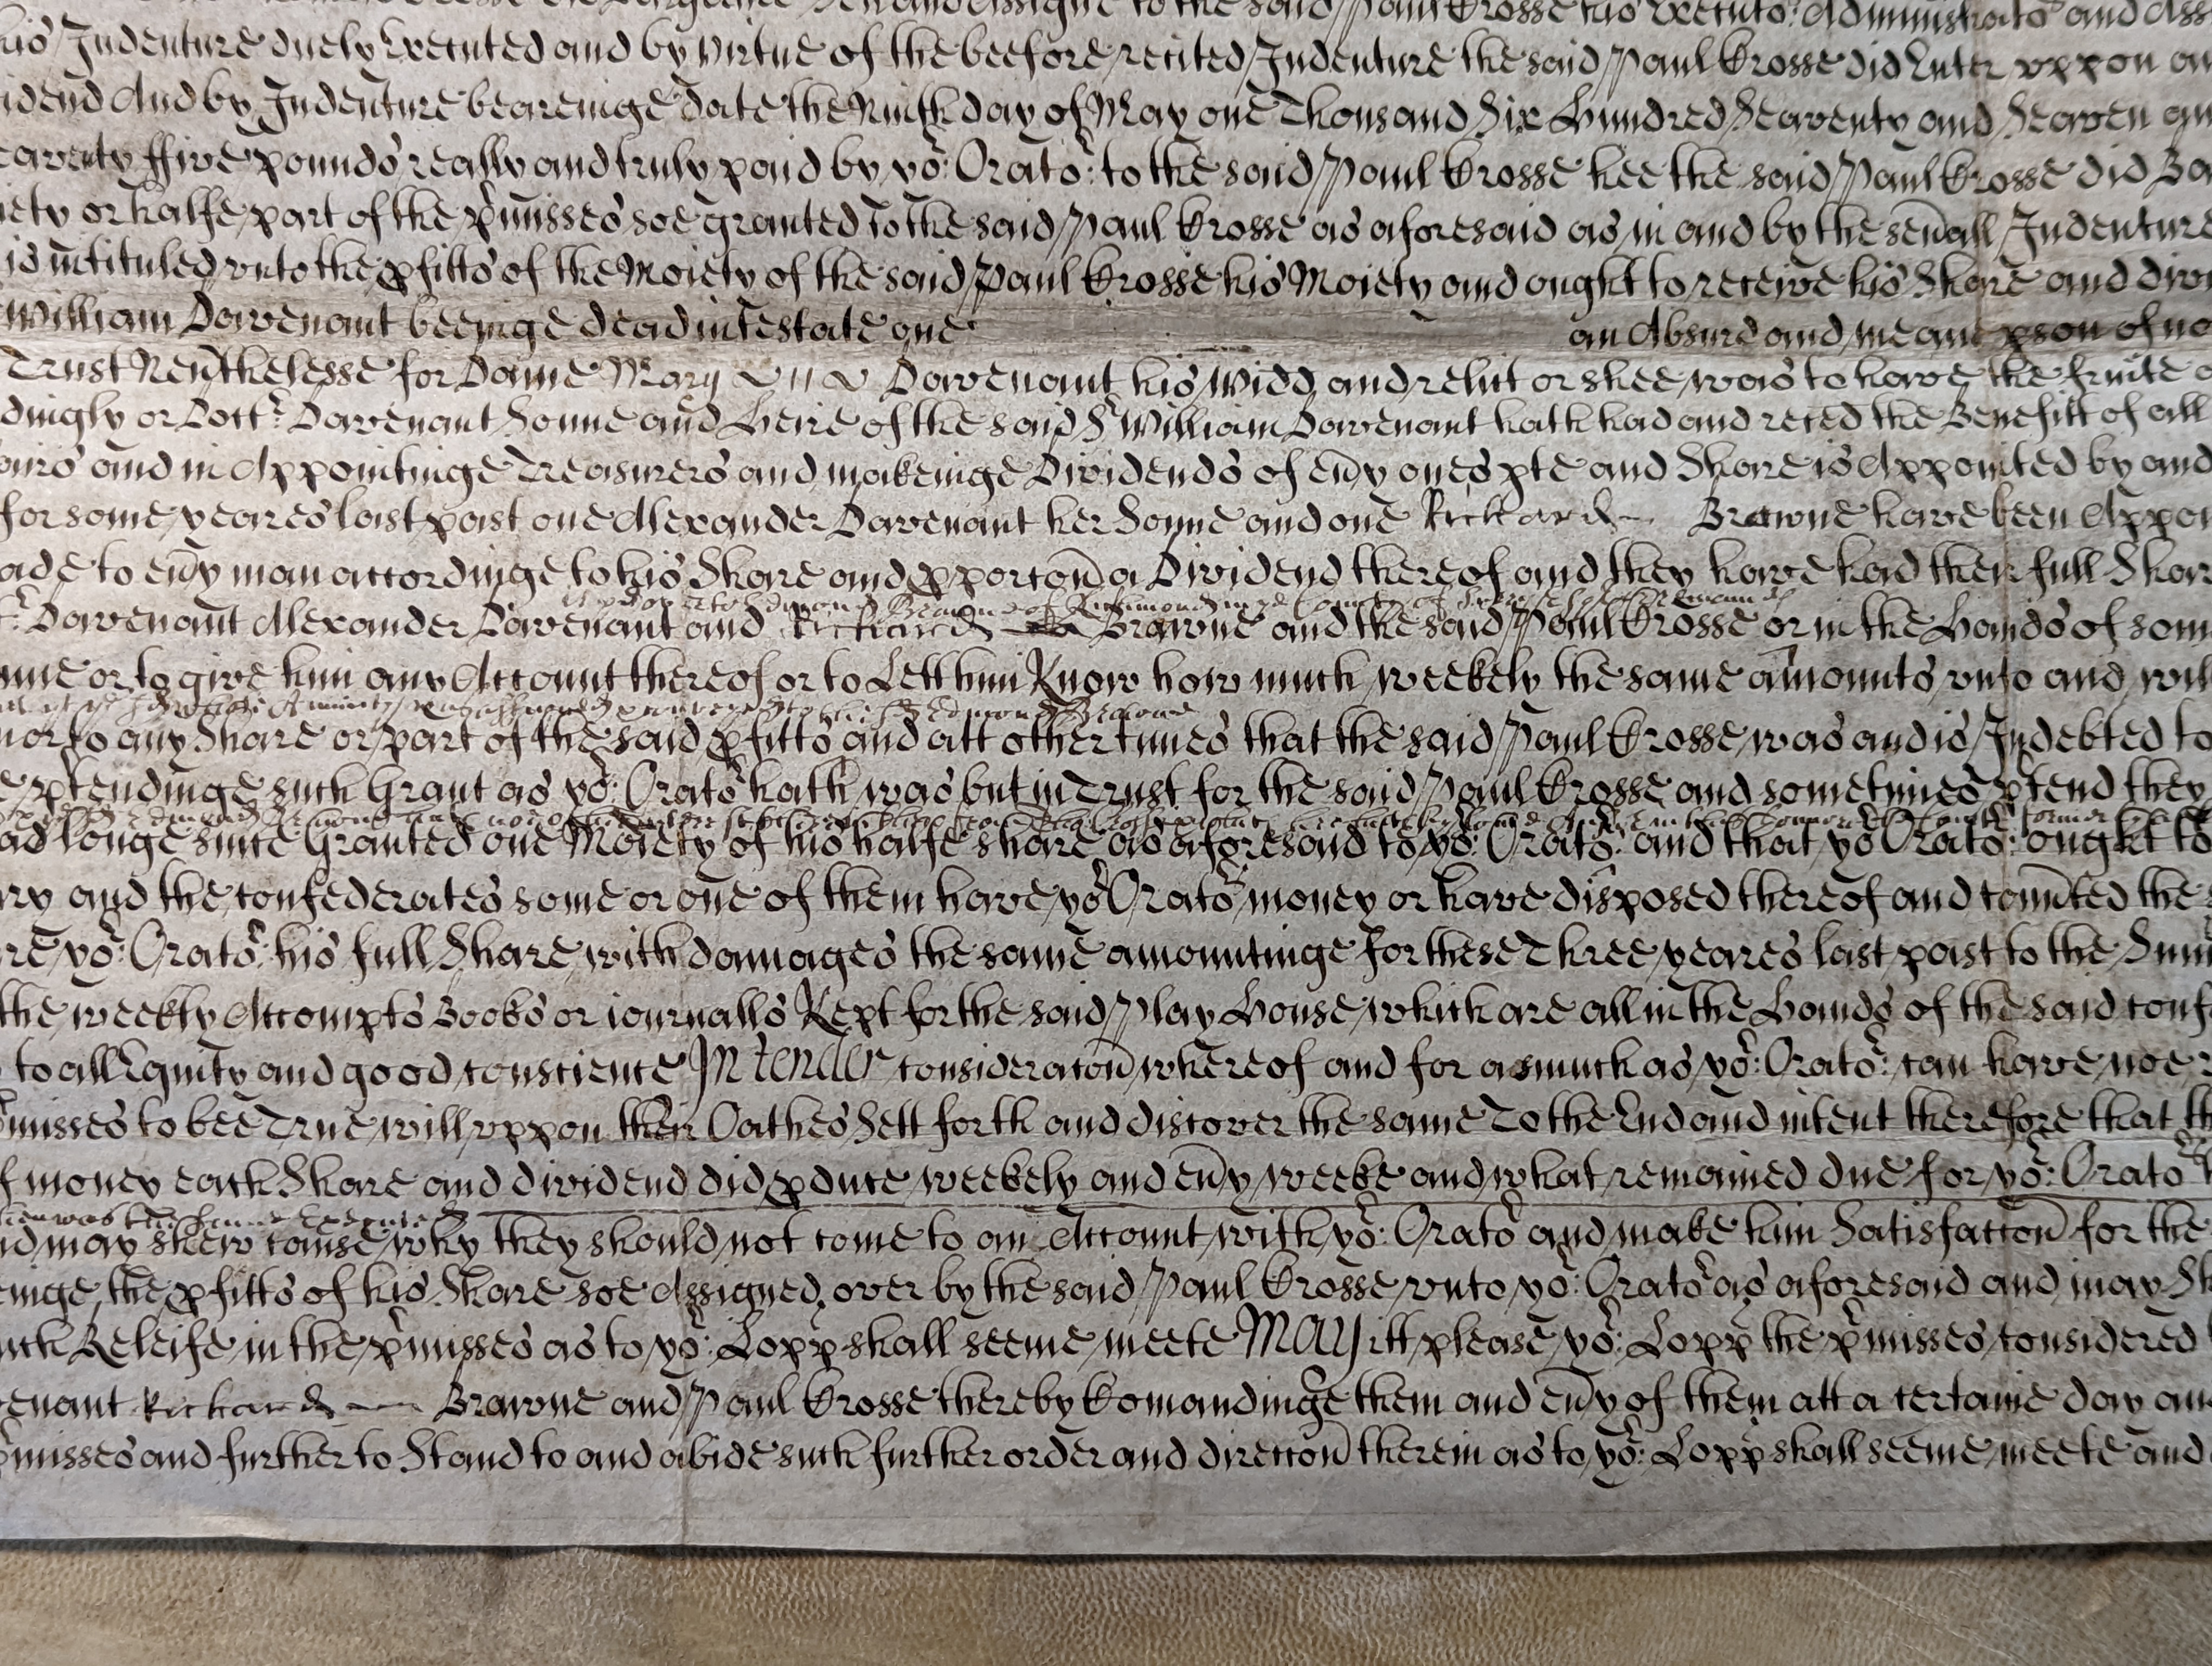 to the said Paul Crosse his Executo: Administrato and Ass
his Indenture duely Executed and by virtue of the beefore recited Indenture the said Paul Crosse did Enter vppon an
idend And by Indenture beareinge date the Ninth day of May one Thousand Six Hundred Seaventy and Seaven an
eaventy ffive pounds really and truly paid by yo: Orato: to the said Paul Crosse hee the said Paul Crosse did Ba
iety or halfe part of the pmisses soe granted To the said Paul Crosse as aforesaid as in and by the seuall Indenture
is intituled vnto the pfitts of the Moiety of the said Paul Crosse his Moiety and ought to receive his Share and divi
William Davenant beeinge dead intestate one an Absurd and meane pson of no
Trust Neuthelesse for Dame Mary Davenant his widd and relict or shee was to have the fruite
dingly or Doctr: Davenant Sonne and Heire of the said Sr William Davenant hath had and reced the Benefitt of all
airs and in Appointinge Treasurers and makeinge Dividends of euy ones pte and Share is Appointed by and
for some yeares last past one Alexander Davenant her Sonne and one Richard Browne have been Appoi
ade to euy man accordinge to his Share and pporcon a Dividend thereof and they have had their full Shar
r: Davenant Alexander Davenant and Richard Browne and the said Paul Crosse or in the Hands of som
ame or to give him any Account thereof or to Lett him Know how much weekely the same amounts vnto and will
nor to any Share or part of the said pfitts and att other tymes that the said Paul Crosse was and is Indebted to
e ptendinge such Grant as yo: Orato hath was but in Trust for the said Paul Crosse and sometimes ptend they
ad longe since Granted one Moiety of his halfe share as aforesaid to yo: Orato: and that yo Orato: ought to
ry and the confederates some or one of them have yo Orato money or have disposed thereof and conuted the
re yo: Orato: his full Share with damages the same amountinge for these Three yeares last past to the Sum
the weekly Accompts Books or iournalls Kept for the said Play House which are all in the Hands of the said conf
to all Equity and good conscience In tender consideracon whereof and for asmuch as yo: Orato: can have noe r
pmisses to bee True will vppon their Oathes Sett forth and discover the same To the End and intent therefore that th
f money each Share and dividend did pduce weekely and euy weeke and what remained due for yo: Orato
id may shew cause why they should not come to an Account with yo: Orato and make him Satisfaccon for the
einge the pfitts of his Share soe Assigned over by the said Paul Crosse vnto yo: Orato as aforesaid and may St
uch Releife in the pmisses as to yo: Lopp shall seeme meete May itt please yo: Lopp the pmisses considered
enant Richard Browne and Paul Crosse thereby Comandinge them and euy of them att a certaine day and
pmisses and further to Stand to and abide such further order and direccon therein as to yo: Lopp shall seeme meete and